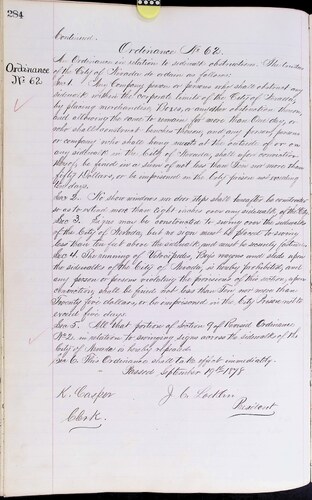 284
Continued.
Ordinance No 62.
Ordinance
No 62
An Ordinance in relation to sidewalk obstructions. The trustees
of the City of Nevada do ordain as follows:
Sec. 1. Any Company person or persons who shall obstruct any
sidewalk within the corporate limits of the City of Nevada,
by placing merchandise, Boxes, or another obstruction thereon,
and allowing the same to remain for more than One day, or
who shall construct benches thereon, and any person, persons
or company who shall hang meats at the outside of or on
any sidewalk in the City of Nevada, shall upon conviction
thereof, be fined in a sum of not less than Five nor more than
fifty Dollars, or be imprisoned in the City prison not exceeding
ten days.
Sec 2. No show windows or door steps shall hereafter be constructed
so as to extend more than Eight inches over any sidewalk of the City.
Sec 3. Signs may be constructed to swing over the sidewalks
of the City of Nevada, but no sign must be placed to swing
less than ten feet above the sidewalk and must be securely fastened.
Sec 4. The running of Velocipedes, Boys wagons and sleds upon
the sidewalks of the City of Nevada, is hereby prohibited, and
any person or persons violating the provisions of this section, upon
conviction shall be fined not less than Five nor more than
Twenty five dollars, or be imprisoned in the City Prison not to
exceed five days.
Sec 5. All that portion of Section 9 of Revised Ordinance
No 2, in relation to swinging signs across the sidewalks of the
City of Nevada is hereby repealed.
Sec 6. This Ordinance shall take effect immediately.
" Passed September 19th 1878
K. Casper J. C. Locklin
Clerk President